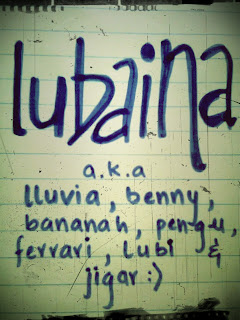 lubaina
a.k.a
lluvia, benny,
bananah, pengu,
ferrari, lubi &
jigar :)